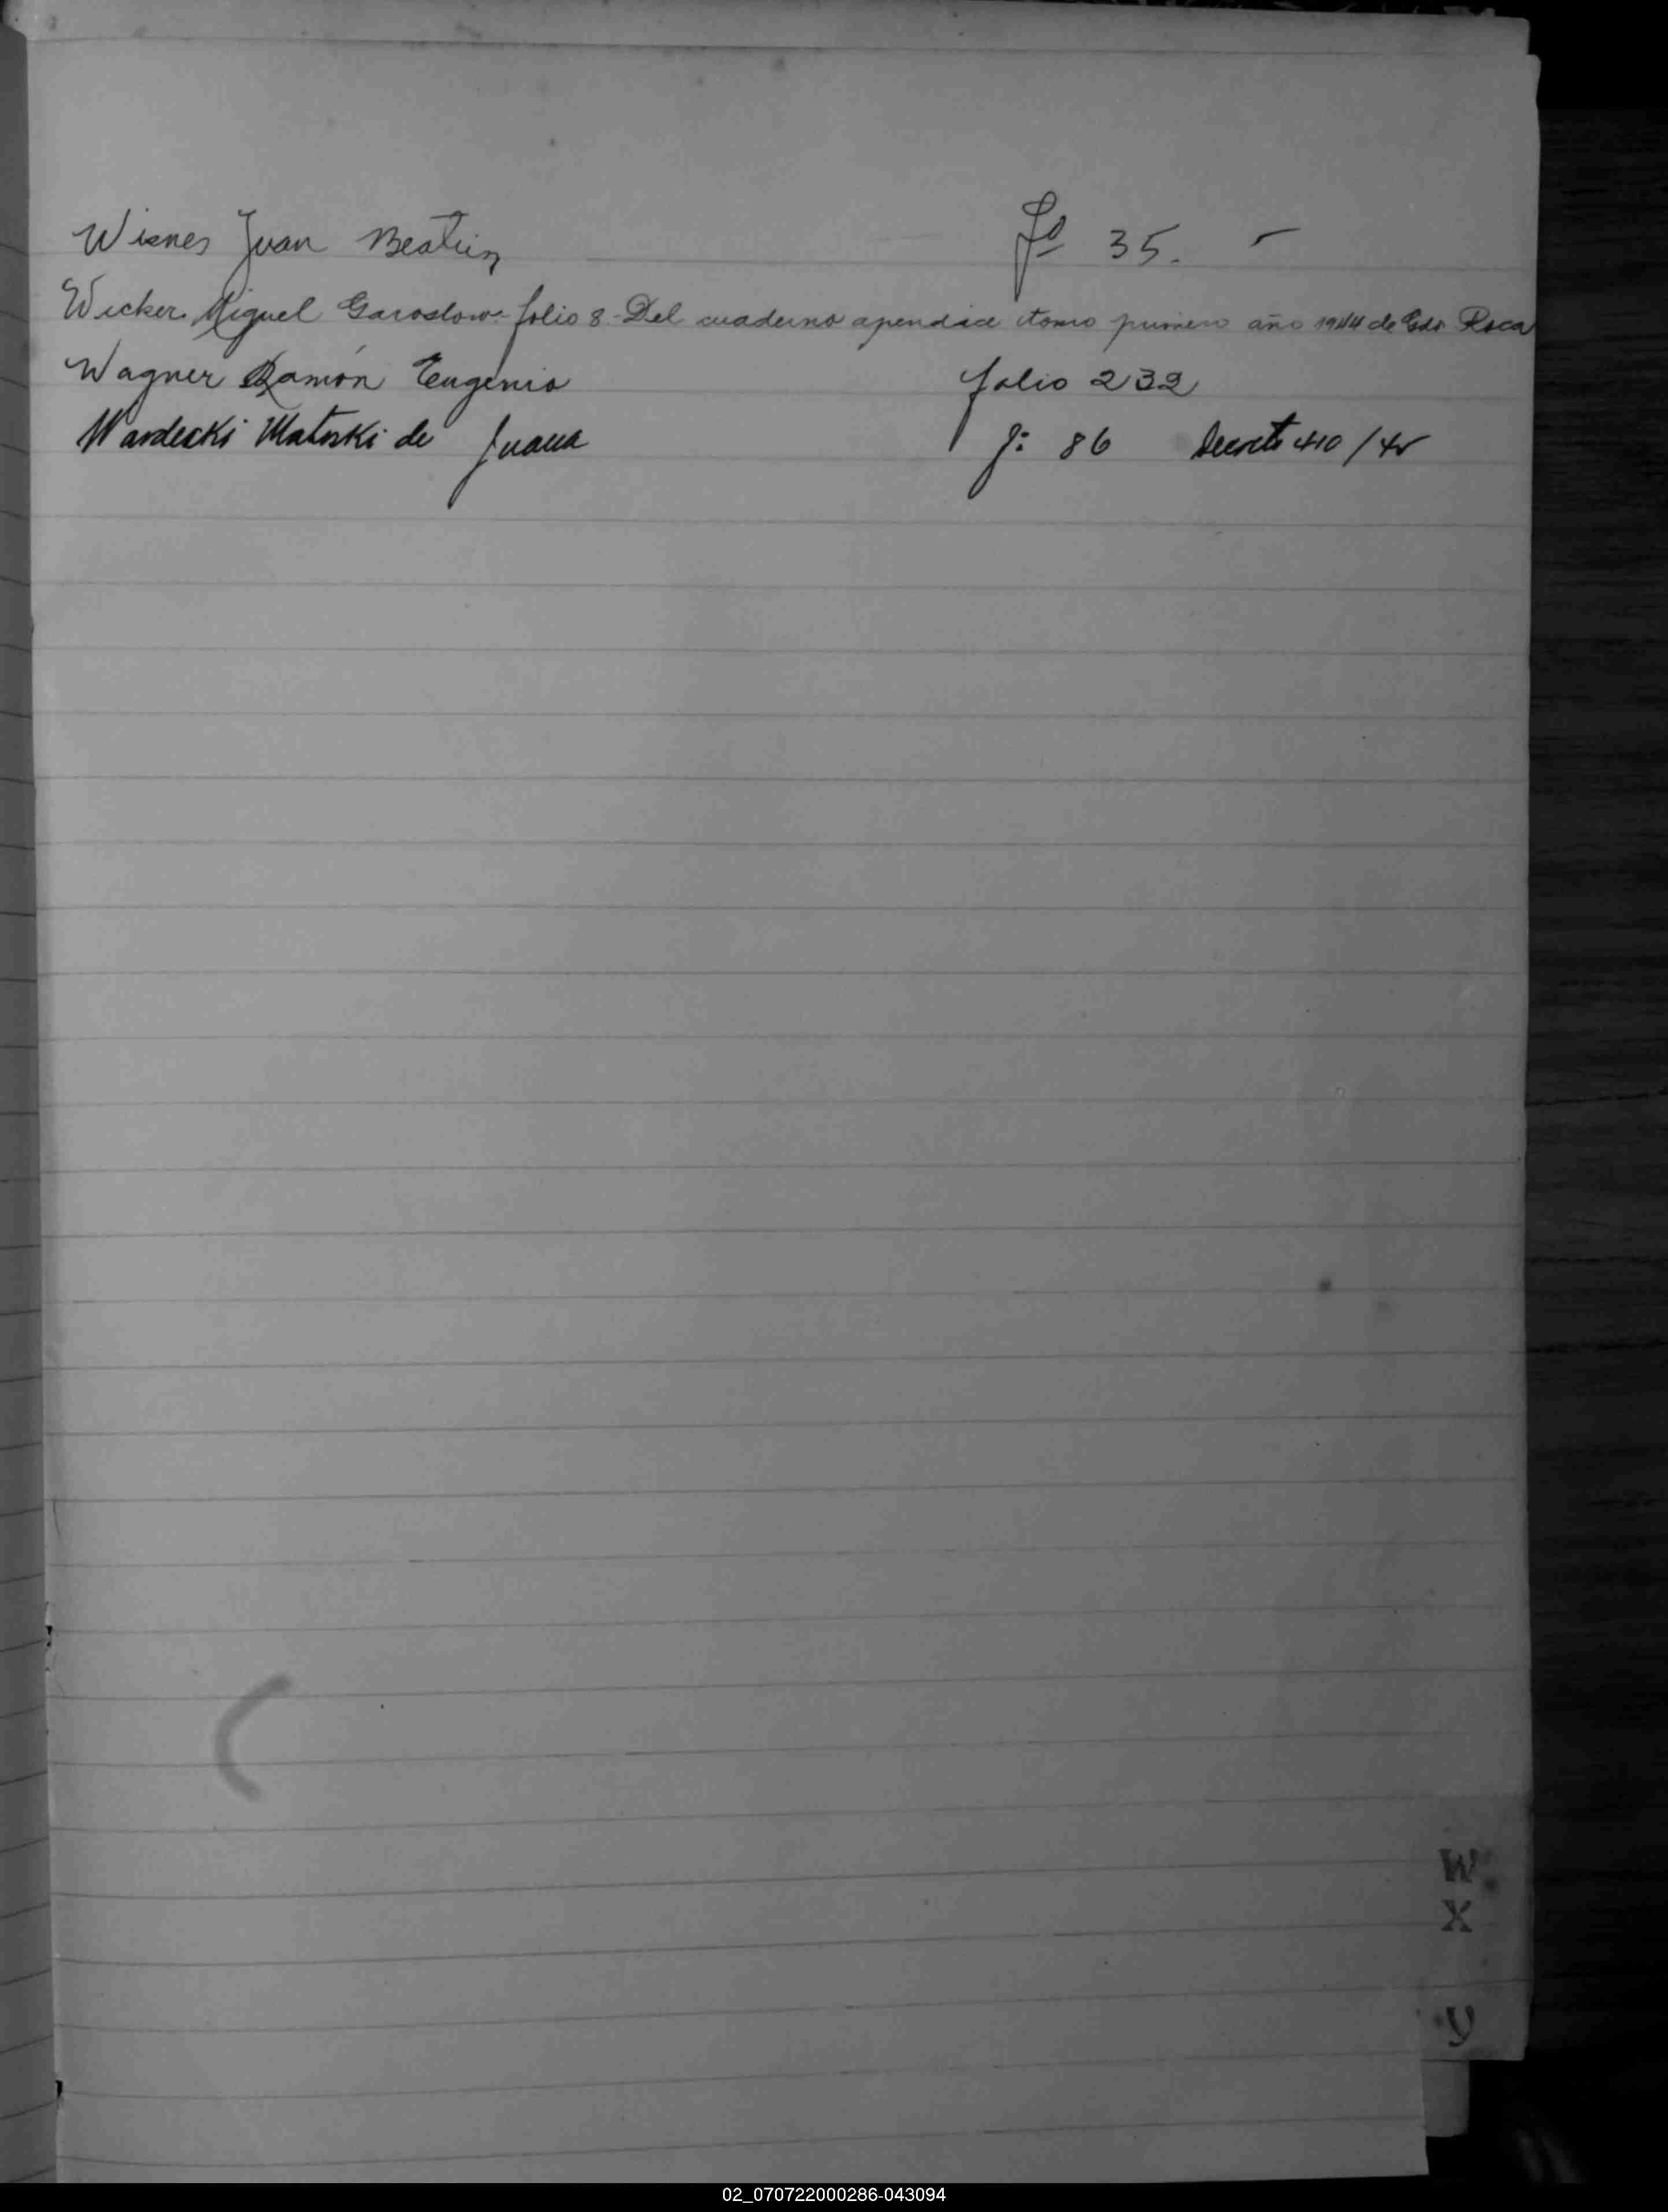 Wisnes Juan Beatriz Fº 35. -
Wicker Miguel Garoslow - folio 8 - Del cuaderno apendice tomo primero año 1944 de Gdr Roca
Wagner Ramón Eugenio folio 232
Wardecki de Juana f: 86 Decreto 410/
W
X
Y
02_070722000286-043094